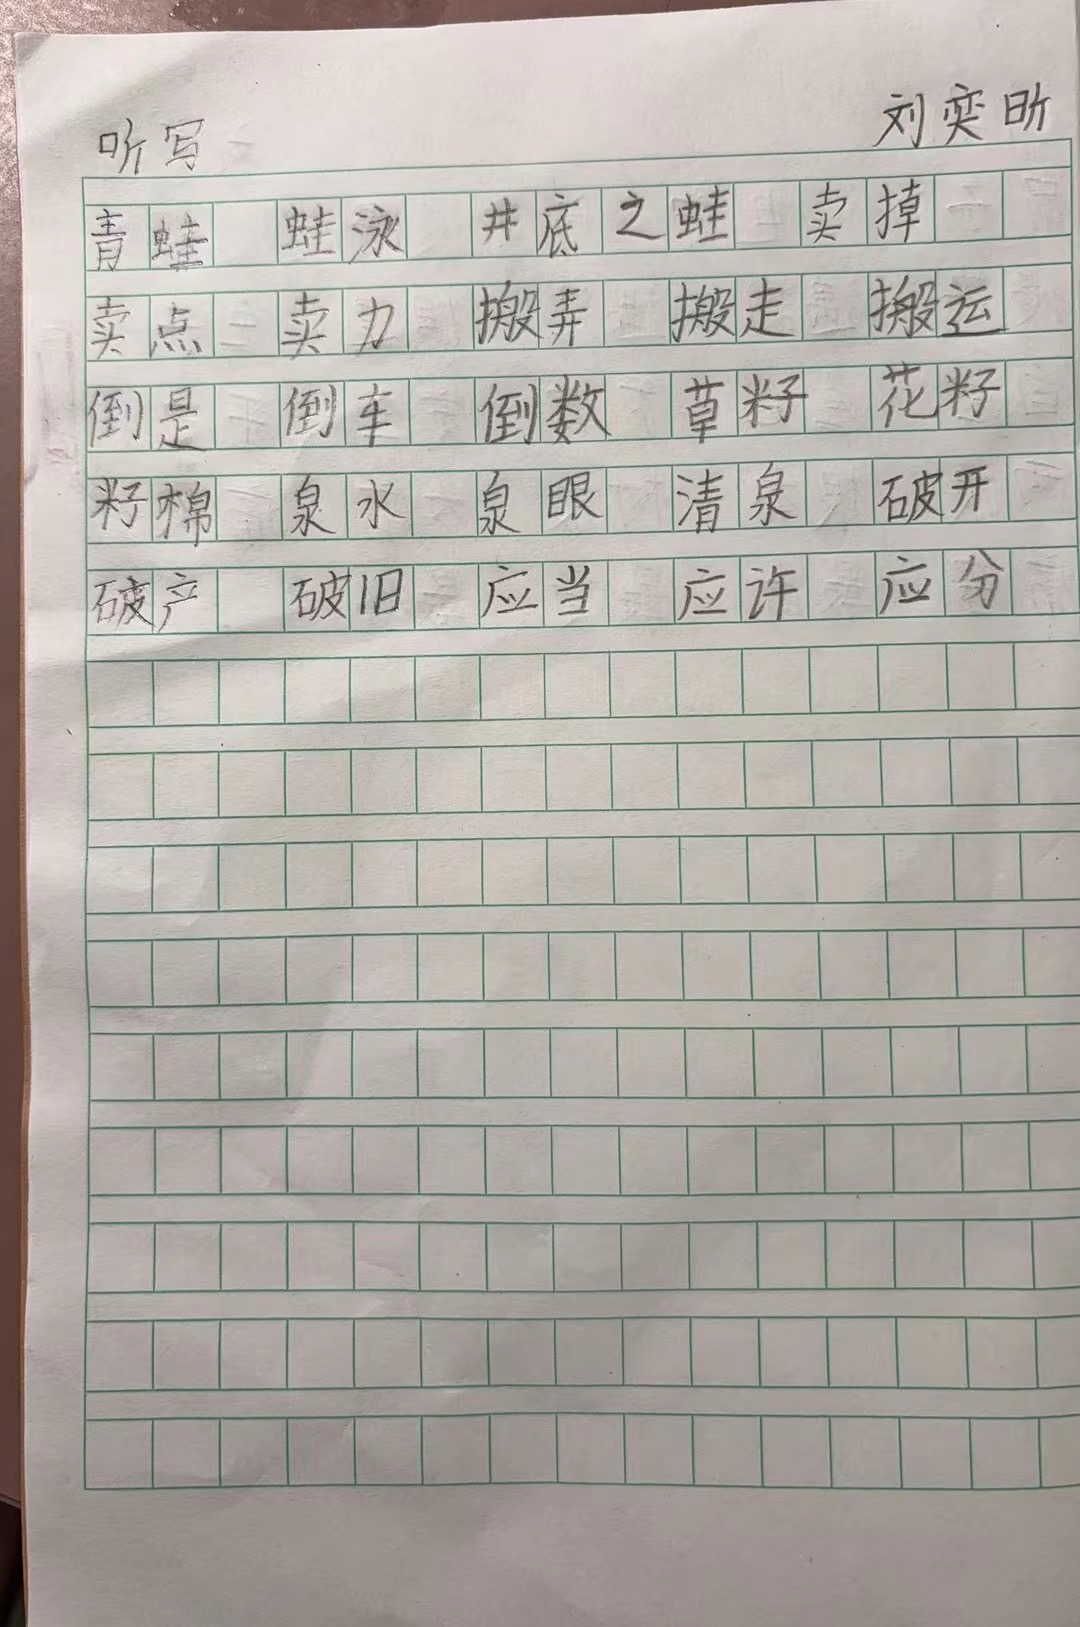 听写 刘奕昕
青蛙 蛙泳 井底之蛙 卖掉
卖点 卖力 搬弄 搬走 搬运
倒是 倒车 倒数 草籽 花籽
籽棉 泉水 泉眼 清泉 破开
破产 破旧 应当 应许 应分